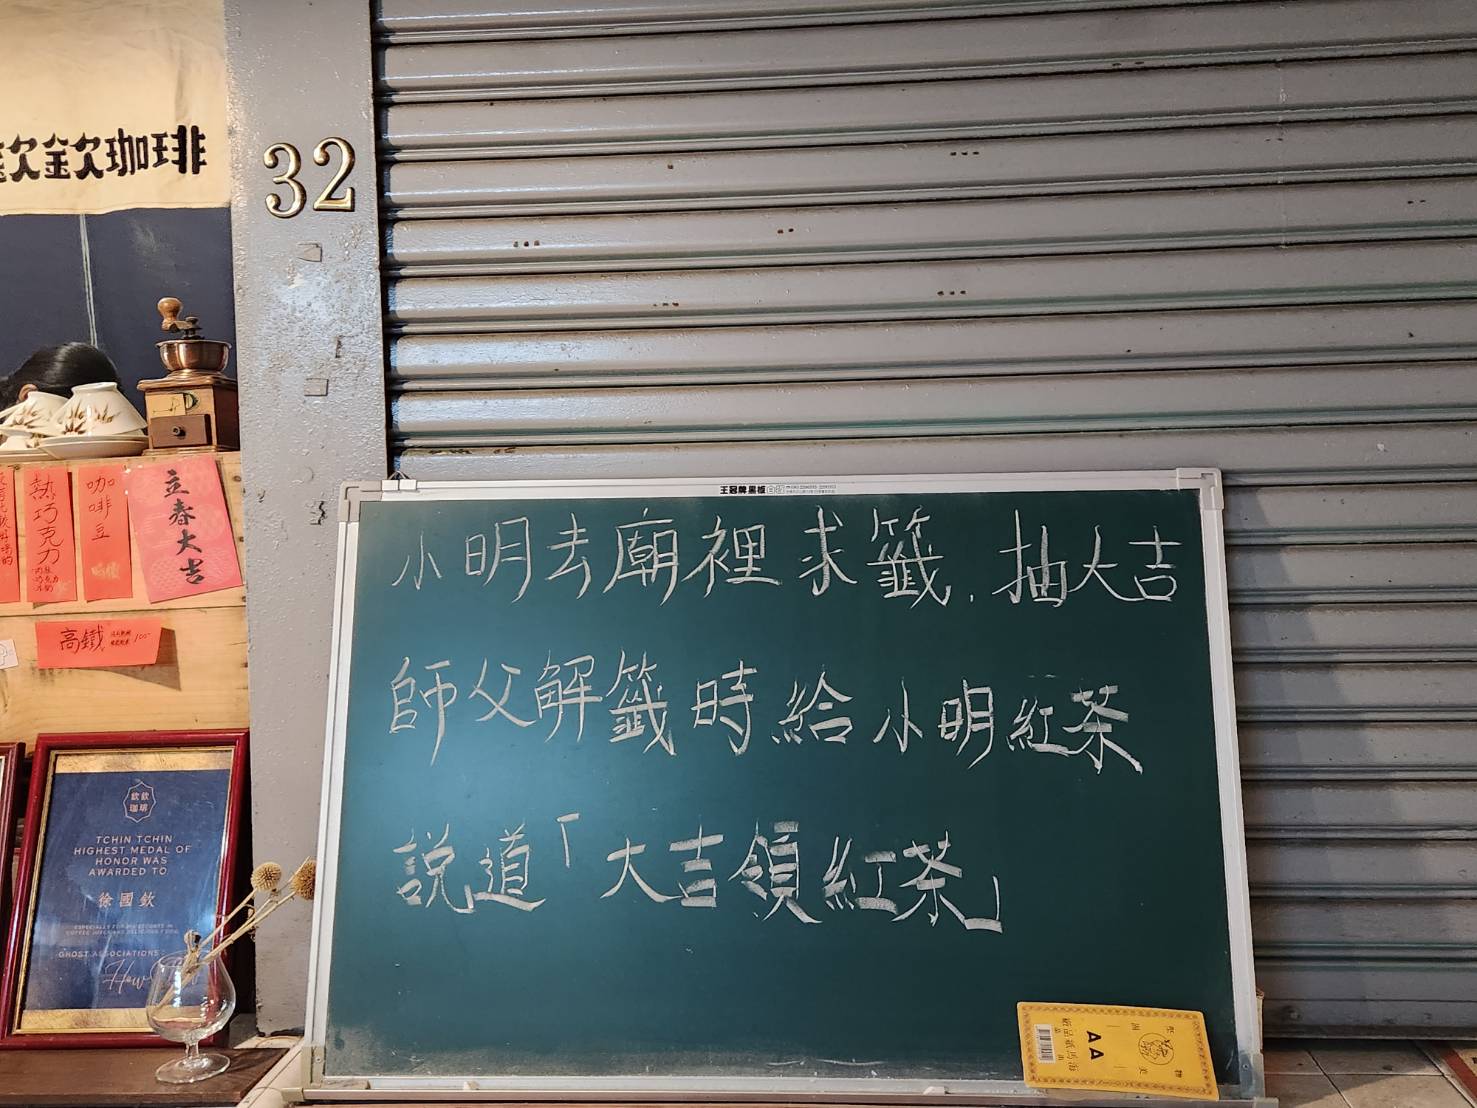 欽欽珈琲
32
熱巧克力
咖啡豆
立春大吉
高鐵
100
欽欽
珈琲
TCHIN TCHIN
HIGHEST MEDAL OF
HONOR WAS
AWARDED TO
徐國欽
GHOST ASSOCIATIONS
王冠牌黑板
小明去廟裡求籤，抽大吉
師父解籤時給小明紅茶
說道「大吉領紅茶」
AA